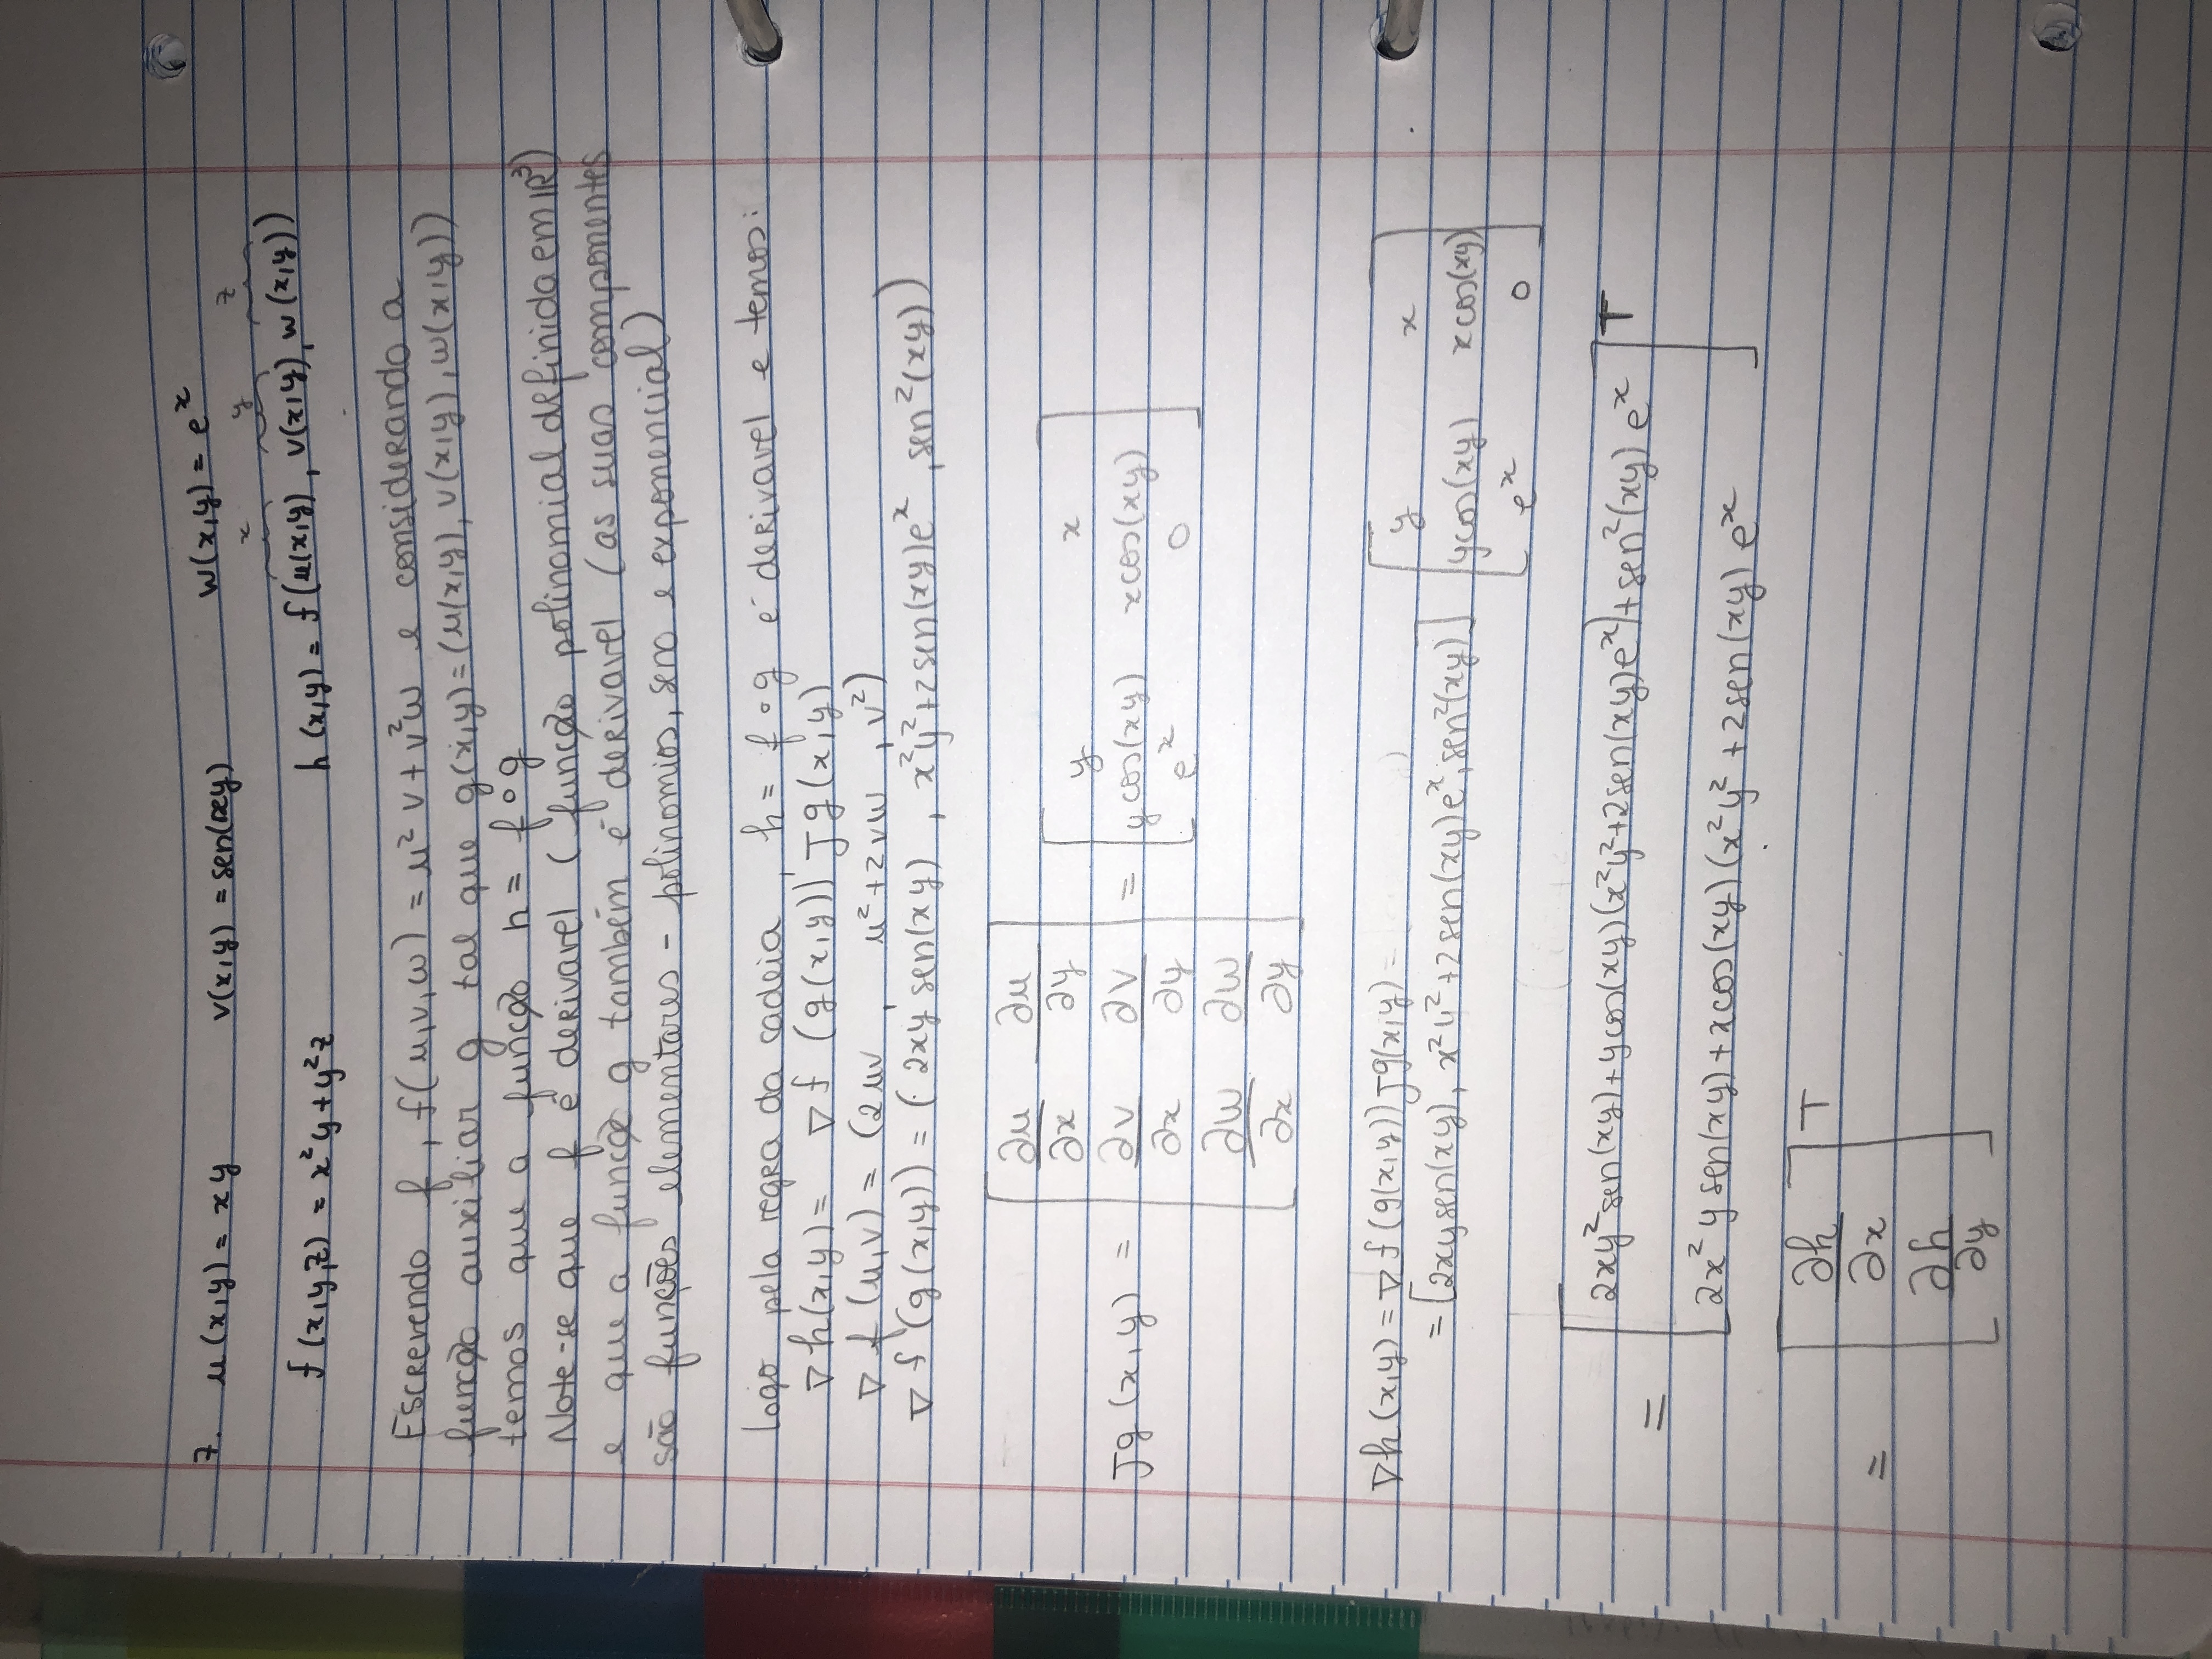 7. u(x,y) = xy v(x,y) = sen(xy) w(x,y) = e^x
x y z
f(x,y,z) = x²y + y²z h(x,y) = f(u(x,y), v(x,y), w(x,y))
Escrevendo f, f(u,v,w) = u²v + v²w e considerando a
função auxiliar g tal que g(x,y) = (u(x,y), v(x,y), w(x,y))
temos que a função h = f∘g
Note-se que f é derivavel (função polinomial definida em ℝ³)
e que a função g também é derivavel (as suas componentes
são funções elementares - polinomios, seno e exponencial)
Logo pela regra da cadeia, h = f∘g é derivavel e temos:
∇h(x,y) = ∇f(g(x,y)) Jg(x,y)
∇f(u,v) = (2uv, u²+2vw, v²)
∇f(g(x,y)) = (2xy sen(xy), x²y²+2sen(xy)e^x, sen²(xy))
∂u/∂x ∂u/∂y
y x
Jg(x,y) = ∂v/∂x ∂v/∂y = ycos(xy) xcos(xy)
e^x 0
∂w/∂x ∂w/∂y
∇h(x,y) = ∇f(g(x,y)) Jg(x,y) =
= [2xysen(xy), x²y²+2sen(xy)e^x, sen²(xy)] [y x
ycos(xy) xcos(xy)
e^x 0]
= [2xy²sen(xy)+ycos(xy)(x²y²+2sen(xy)e^x)+sen²(xy) e^x
2x²y sen(xy)+xcos(xy)(x²y²+2sen(xy) e^x]^T
= [∂h/∂x
∂h/∂y]^T